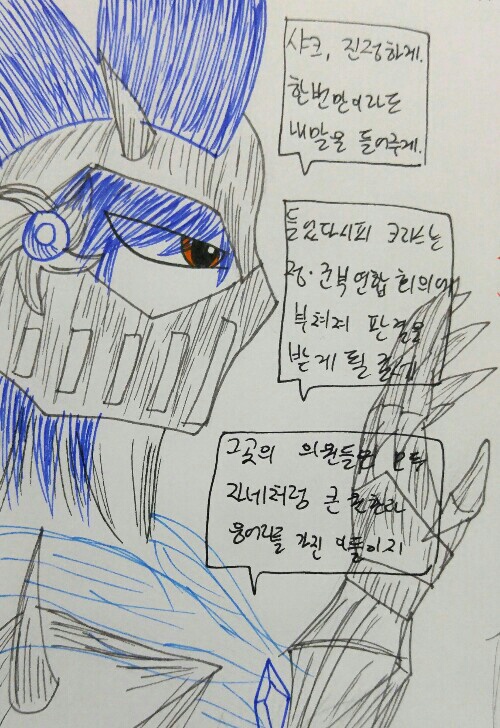 샤크, 진정하게.
한번만이라도
내말을 들어주게.
들었다시피 크라스는
정·군부연합 회의에
부쳐져 판결을
받게 될
그곳의 의원들은 모두
자네처럼 큰
응어리를 가진 이들이지